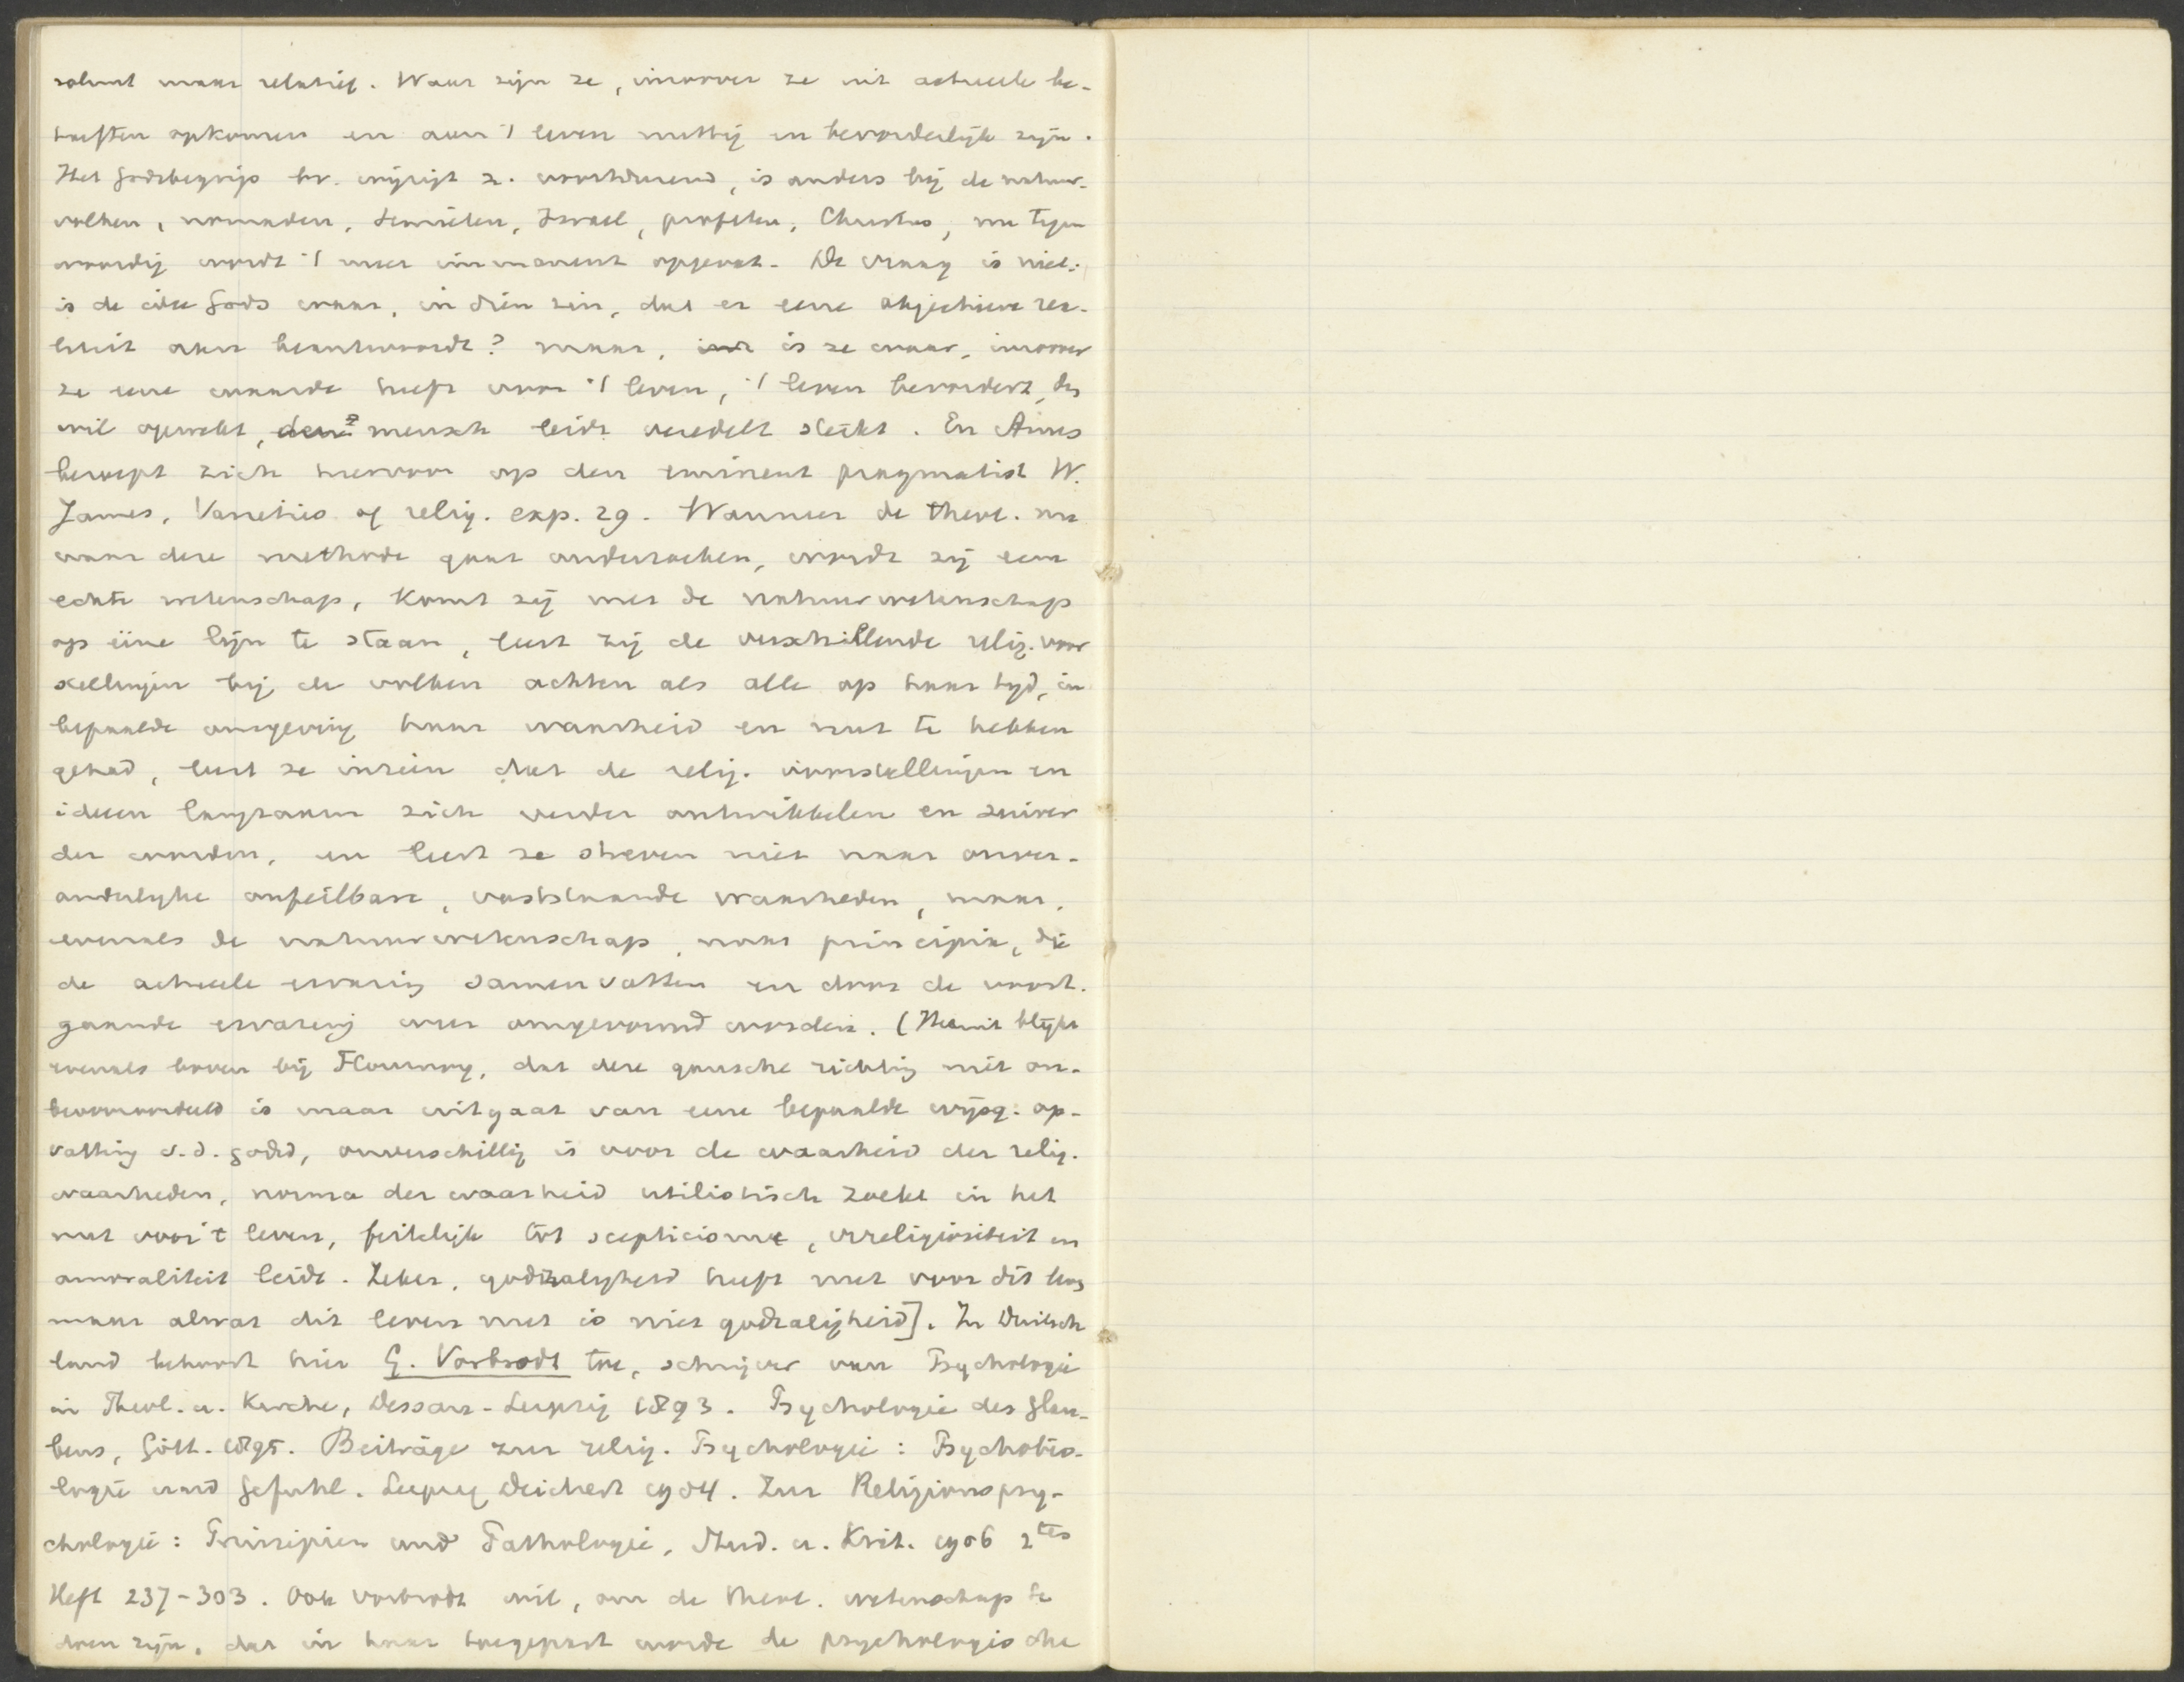 soluut maar relatief. Waar zijn ze, inzover ze uit actueele be-
hoeften opkomen en aan 't leven nuttig en bevorderlijk zijn.
Het Godsbegrip bv. wijzigt z. voortdurend, is anders bij de natuur-
volken, nomaden, Semieten, Israel, profeten, Christus, nu tegen
woordig wordt 't meer immanent opgevat. De vraag is niet:
is de idee Gods waar, in dien zin, dat er eene objectieve rea-
liteit aan beantwoordt? maar, is ze waar, inzover
ze eene waarde heeft voor 't leven, 't leven bevordert, den
wil opwekt, den mensch leidt veredelt sterkt. En Ames
beroept zich hiervoor op den eminent pragmatist W.
James, Varieties of relig. exp. 29. Wanneer de theol. nu
naar deze methode gaat onderzoeken, wordt zij eene
echte wetenschap, komt zij met de natuurwetenschap
op eene lijn te staan, leert zij de verschillende relig. voor
stellingen bij de volken achten als alle op haar tijd, in
bepaalde omgeving haar waarheid en nut te hebben
gehad, leert ze inzien dat de relig. voorstellingen en
ideeen langzaam zich verder ontwikkelen en zuiver
der worden, en leert ze streven niet naar onver-
anderlyke onfeilbare, vaststaande waarheden, maar,
evenals de natuurwetenschap, naar principia, die
de actueele ervaring samenvatten en door de voort-
gaande ervaring weer omgevormd worden. (Hieruit blijkt
evenals boven bij Flournoy, dat deze gansche richting niet on-
bevooroordeeld is maar uitgaat van eene bepaalde wijsg. op-
vatting v.d. godsd, onverschillig is voor de waarheid der relig.
waarheden, norma der waarheid utilistisch zoekt in het
nut voor 't leven, feitelijk tot scepticisme, irreligiositeit en
amoraliteit leidt. Zeker, godzaligheid heeft nut voor dit leven
maar al wat dit leven nut is niet godzaligheid]. In Duitsch
land behoort hier G. Vorbrodt toe, schrijver van Psychologie
in Theol. u. Kirche, Dessau-Leipzig 1893. Psychologie des Glau-
bens, Gött. 1895. Beiträge zur relig. Psychologie: Psychobio-
logie und Gefühl. Leipzig Deichert 1904. Zur Religionspsy-
chologie: Prinzipien und Pathologie, Stud. u. Krit. 1906 2tes
Heft 237-303. Ook Vorbrodt wil, om de theol. wetenschap te
doen zijn, dat in haar toegepast worde de psychologische